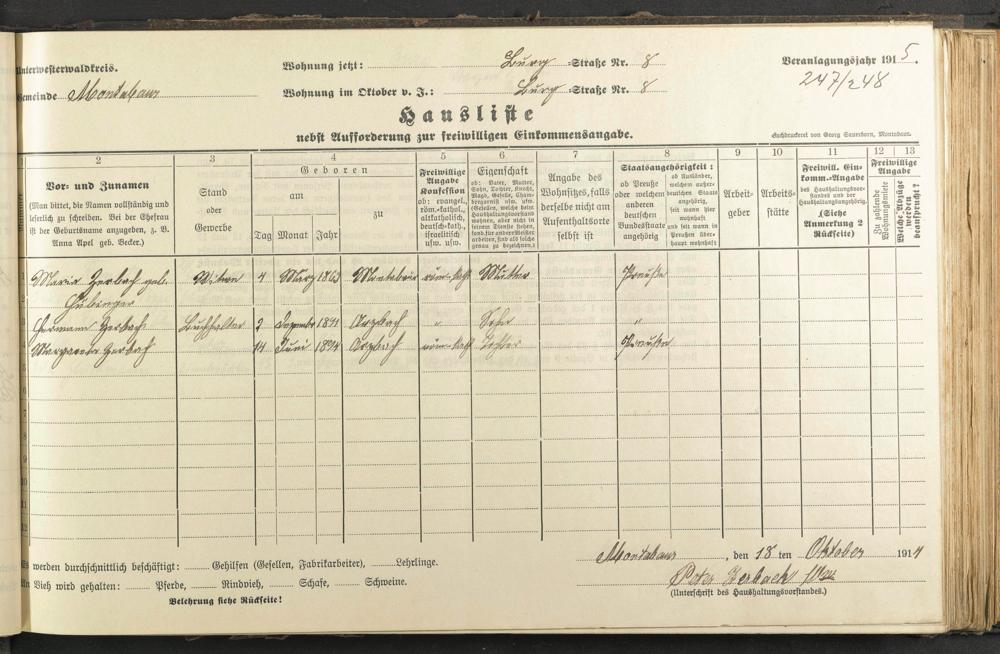 Unterwesterwaldkreis.
Gemeinde Montabaur
Wohnung jetzt: Burg Straße Nr. 8
Wohnung im Oktober v. J.: Burg Straße Nr. 8
Veranlagungsjahr 1915.
247/248
Hausliste
nebst Aufforderung zur freiwilligen Einkommensangabe.
Buchdruckerei von Georg Sauerborn, Montabaur.
2 3 4 5 6 7 8 9 10 11 12 13
Vor- und Zunamen
(Man bittet, die Namen vollständig und
leserlich zu schreiben. Bei der Ehefrau
ist der Geburtsname anzugeben, z. B.
Anna Apel geb. Becker.)
Stand
oder
Gewerbe
Geboren
am
zu
Tag Monat Jahr
Freiwillige
Angabe
Konfession
ob: evangel.,
röm.-kathol.,
altkatholisch,
deutsch-kath.,
israelitisch
usw. usw.
Eigenschaft
ob: Vater, Mutter,
Sohn, Tochter, Knecht,
Magd, Geselle,
Angabe des
Wohnsitzes, falls
derselbe nicht am
Aufenthaltsorte
selbst ist
Staatsangehörigkeit:
ob Preuße
oder welchem
anderen
deutschen
Bundesstaate
angehörig
ob Ausländer,
welchem außer-
deutschen Staate
angehörig,
seit wann hier
wohnhaft
und seit wann in
Preußen über-
haupt wohnhaft
Arbeit-
geber
Arbeits-
stätte
Freiwill. Ein-
komm.-Angabe
des Haushaltungsvor-
standes und der
Haushaltungsangehörig.
(Siehe
Anmerkung 2
Rückseite)
Freiwillige
Angabe
Zu zahlende
Wohnungsmiete
Welche Abzüge
werden
beansprucht?
Maria Zerbach geb. Witwe 4 März 1863 Montabaur röm-kath Mutter Preuße
Hermann Zerbach Buchhalter 2 Dezember 1891 Arzbach " Sohn "
Margareta Zerbach 14 Juni 1894 Arzbach röm-kath Tochter Preuße
Es werden durchschnittlich beschäftigt: Gehilfen (Gesellen, Fabrikarbeiter), Lehrlinge.
An Vieh wird gehalten: Pferde, Rindvieh, Schafe, Schweine.
Belehrung siehe Rückseite!
Montabaur, den 18 ten Oktober 1914
Peter Zerbach Wwe
(Unterschrift des Haushaltungsvorstandes.)